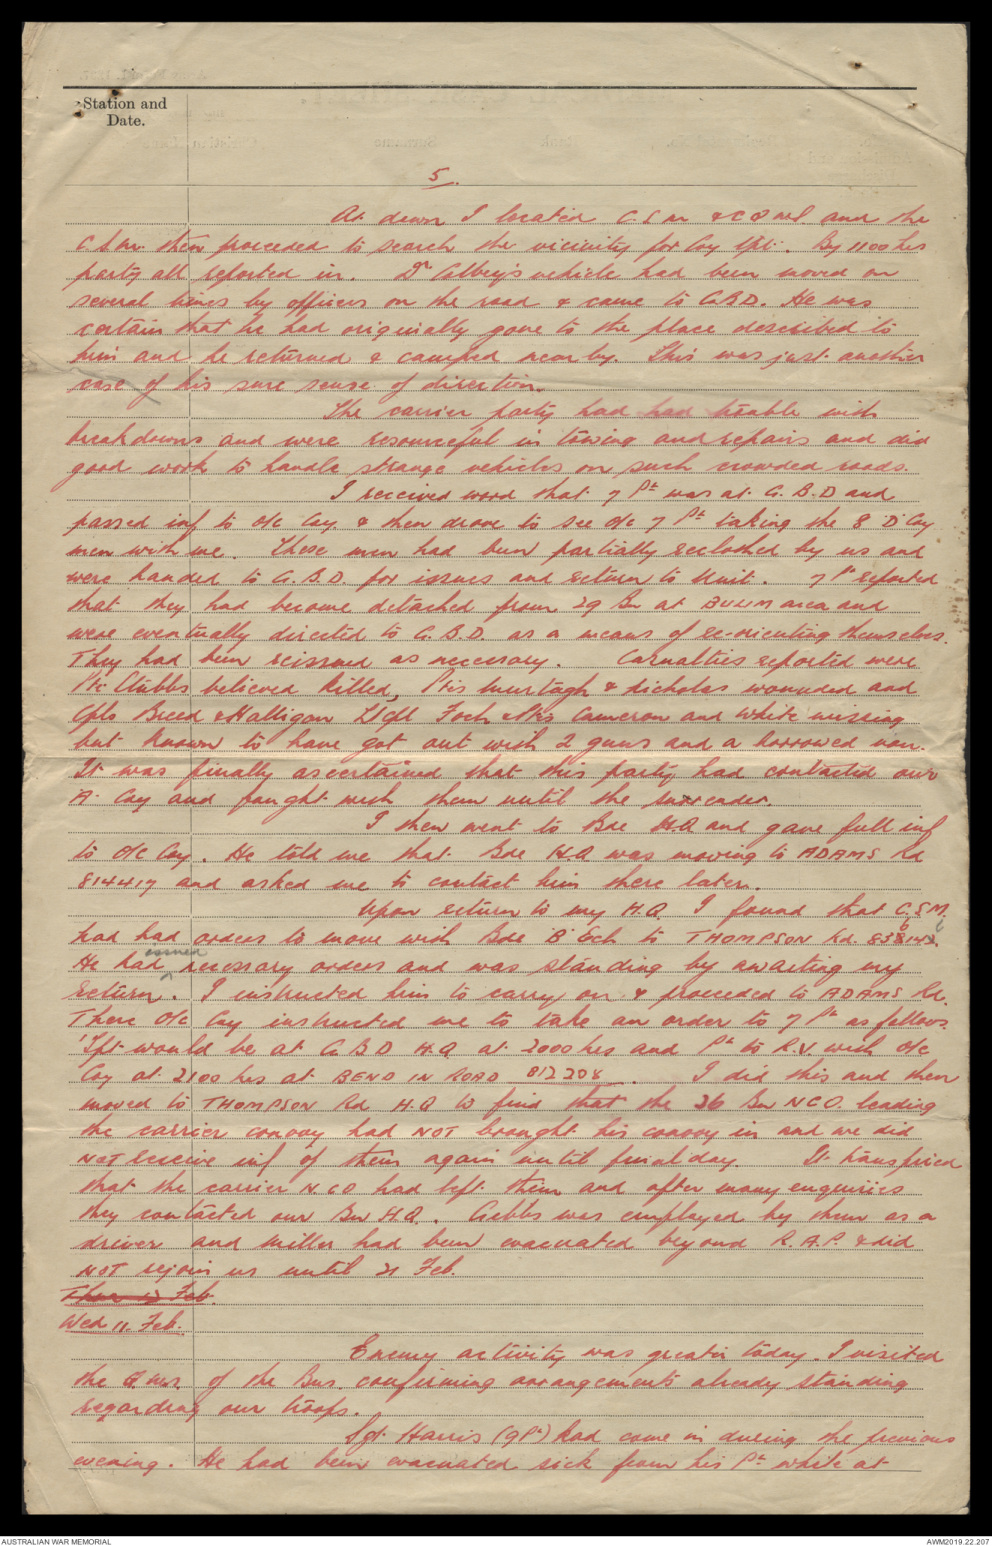 Station and
Date.
5.
At dawn I located C.S.M. & C Q M S and the
C.S.M. then proceeded to search the vicinity for Coy Tpt. By 1100 hrs
party all reported in. Dr Calbey's vehicle had been moved on
several times by officers on the road & came to G.B.D. He was
certain that he had originally gone to the place described to
him and he returned & camped near by. This was just another
case of his sure sense of direction.
The carrier party had had trouble with
breakdowns and were resourceful in towing and repairs and did
good work to handle strange vehicles on such crowded roads.
I received word that 7 Pl was at G.B.D and
passed inf to O/C Coy & then drove to see O/c 7 Pl taking the 8 'D' Coy
men with me. These men had been partially reclothed by us and
were handed to G.B.D. for issues and return to Unit. 7 Pl reported
that they had become detached from 29 Bn at BULIM area and
were eventually directed to G.B.D. as a means of re-orienting themselves.
They had been reissued as necessary. Casualties reported were
Pte Stubbs believed killed, Ptes Murtagh & Nicholas wounded and
Cpls Breed & Halligan L/Cpl Foch Ptes Cameron and White missing
but known to have got out with 2 guns and a borrowed van.
It was finally ascertained that this party had contacted our
A Coy and fought with them until the surrender.
I then went to Bde H.Q and gave full inf
to O/C Coy. He told me that Bde H.Q was moving to ADAMS Rd
814417 and asked me to contact him there later.
Upon return to my H.Q. I found that C.S.M.
had had orders to move with Bde 'B' Ech to THOMPSON Rd.
He had issued necessary orders and was standing by awaiting my
return. I instructed him to carry on & proceeded to ADAMS Rd.
There O/c Coy instructed me to take an order to 7 Pl as follows
'Tpt would be at G B D H.Q at 2000 hrs and Pl to R.V. with O/c
Coy at 2100 hrs at BEND IN ROAD 812208. I did this and then
moved to THOMPSON Rd H.Q to find that the 26 Bn NCO. leading
the carrier convoy had NOT brought his convoy in and we did
NOT receive inf of them again until final day. It transpired
that the carrier N.CO had left them and after many enquiries
they contacted our Bn H.Q. Gibbs was employed by them as a
driver and Miller had been evacuated beyond R.A.P. & did
NOT rejoin us until 21 Feb.
Thur 12 Feb.
Wed 11. Feb.
Enemy activity was greater today. I visited
the Q.Mrs. of the Bns. confirming arrangements already standing
regarding our troops.
Sgt. Harris (9 Pl) had come in during the previous
evening. He had been evacuated sick from his Pl while at
AUSTRALIAN WAR MEMORIAL
AWM2019.22.207